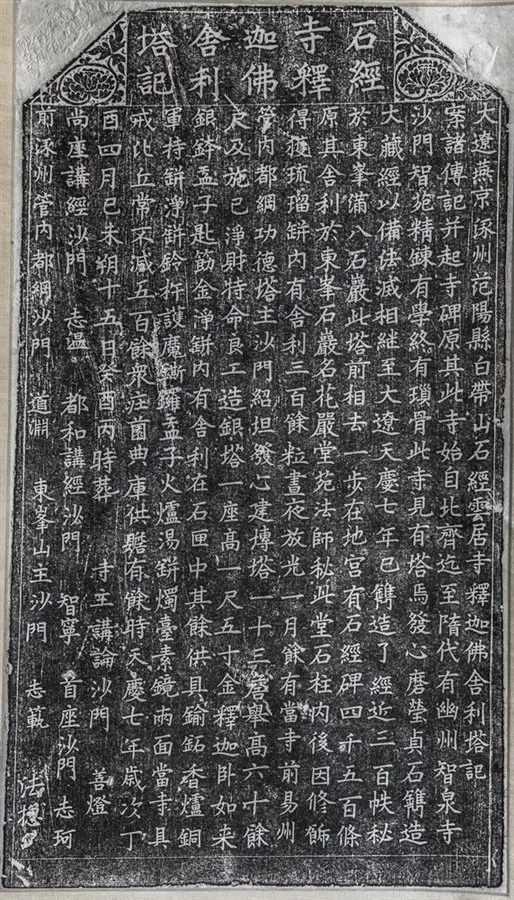 石經
寺釋
迦佛
舍利
塔記
大遼燕京涿州范陽縣白帶山石經雲居寺釋迦佛舍利塔記
案諸傳記并起寺碑原其此寺始自北齊迄至隋代有幽州智泉寺
沙門智苑精鍊有學終有瑣骨此寺見有塔焉發心磨瑩貞石鐫造
大藏經以備法滅相継至大遼天慶七年已鐫造了經近三百帙秘
於東峯滿八石巖此塔前相去一步在地宮有石經碑四千五百條
原其舍利於東峯石巖名花嚴堂苑法師秘此堂石柱内後因修飾
得獲琉瑠缾内有舍利三百餘粒晝夜放光一月餘有當寺前易州
管内都綱功德塔主沙門紹坦發心建塼塔一十三層舉高六十餘
尺及施己淨財特命良工造銀塔一座高一尺五寸金釋迦卧如来
銀鉢盂子匙筯金淨缾内有舍利在石匣中其餘供具鍮鉐香爐銅
軍持缾淨缾鈴杵護魔鑼盂子火爐湯缾燭臺素鏡兩面當寺具
戒比丘常不減五百餘衆庄菌典庫供贍有餘時天慶七年歲次丁
酉四月己未朔十五日癸酉丙時葬 寺主講論沙門 善燈
尚座講經沙門 志温 都和講經沙門 智寧 首座沙門 志珂
前涿州管内都綱沙門 道淵 東峯山主沙門 志範 法